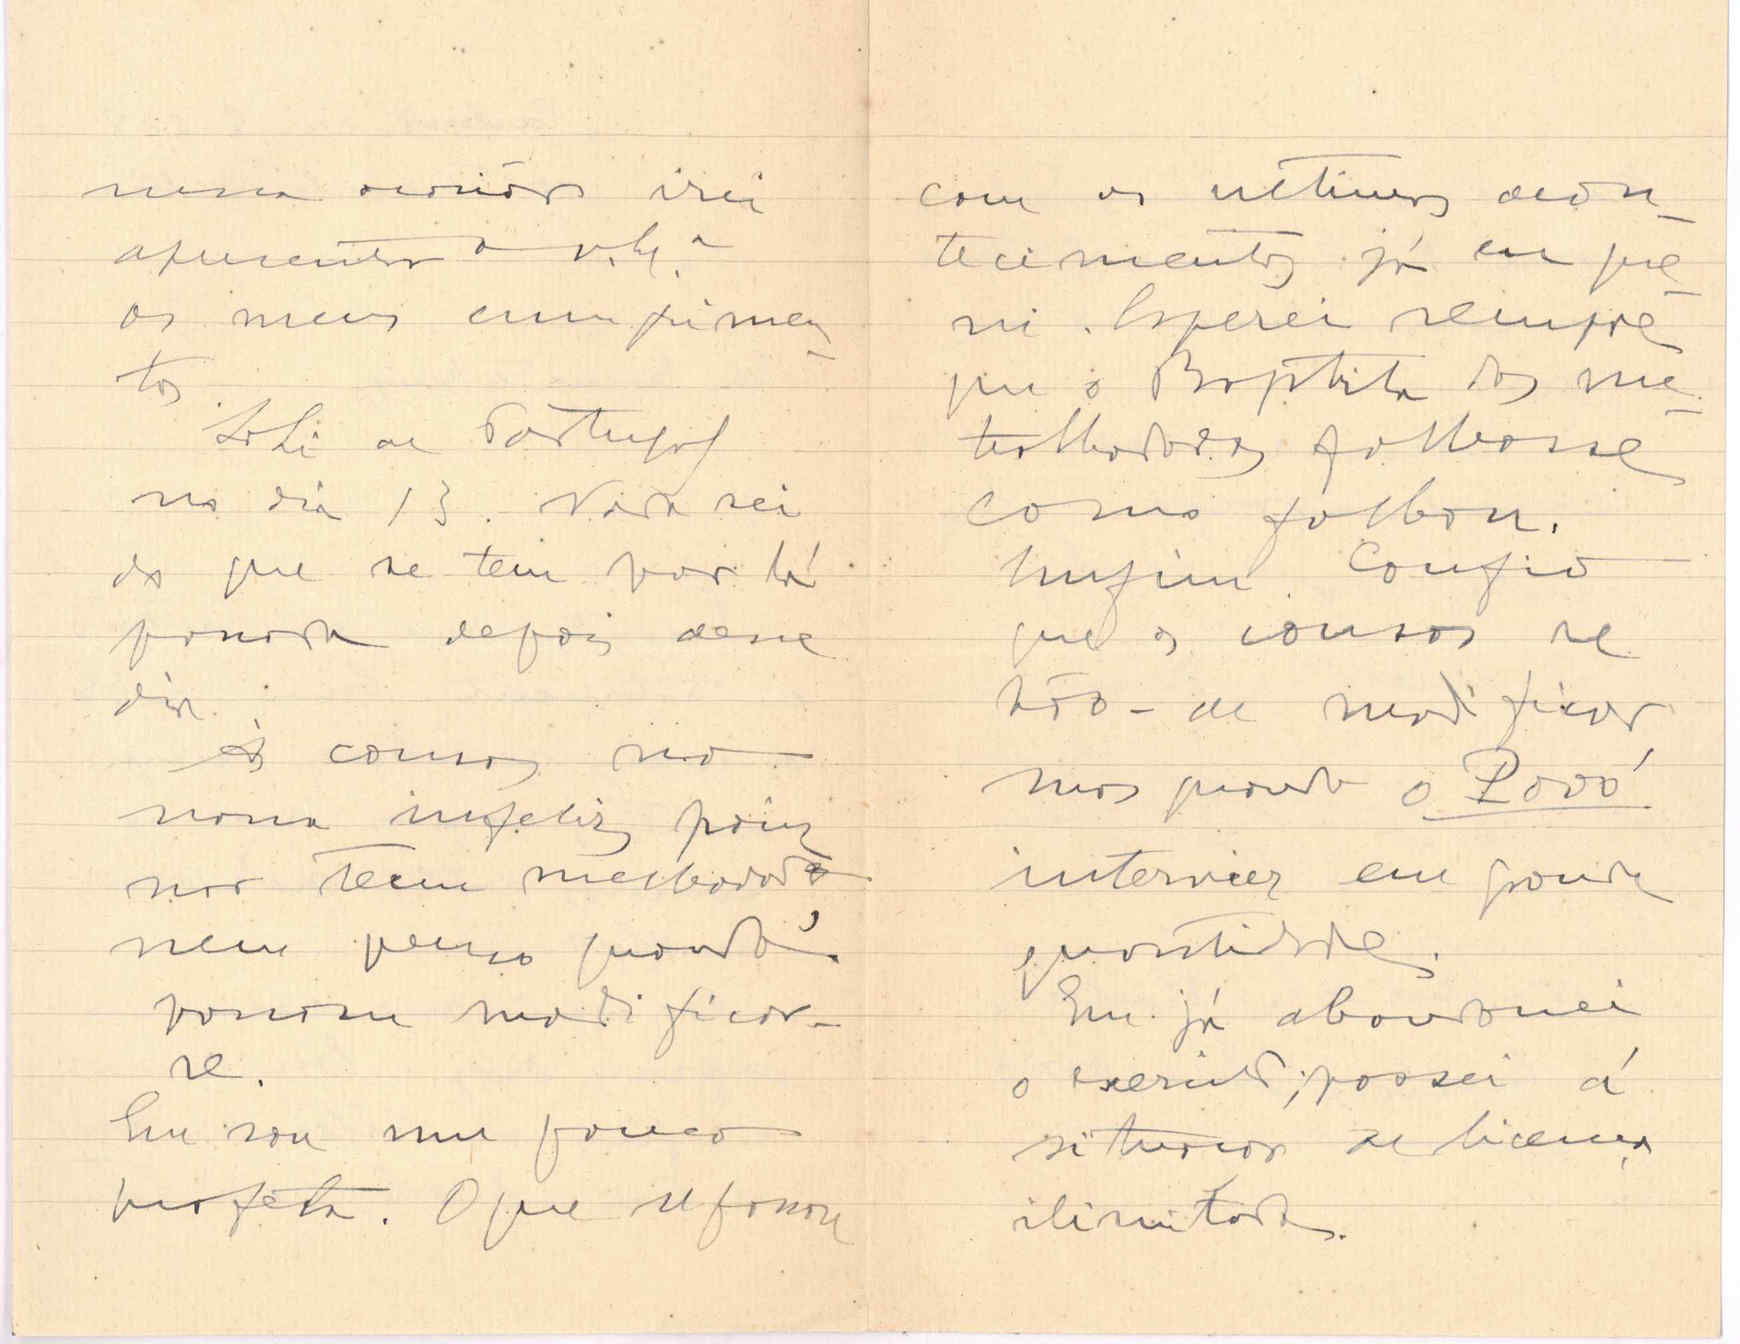 nessa occasião irei
apresentar a V. Ex.ª
os meus cumprimen-
tos
Sahi de Portugal
no dia 13. Nada sei
do que se tem por lá
passado depois desse
dia.
As cousas no
nosso infeliz paiz
não teem melhorado
nem penso quando
possam modificar-
se.
Eu sou um pouco
profeta. O que se passou
com os ultimos acon-
tecimentos já eu pre-
vi. Esperei sempre
que o Baptista das me-
tralhadoras falhasse
como falhou.
Emfim confio
que as cousas se
hão-de modificar
mas quando o Povo
intervier em grande
quantidade.
Eu já abandonei
o exercito; passei á
situação de licença
ilimitada.